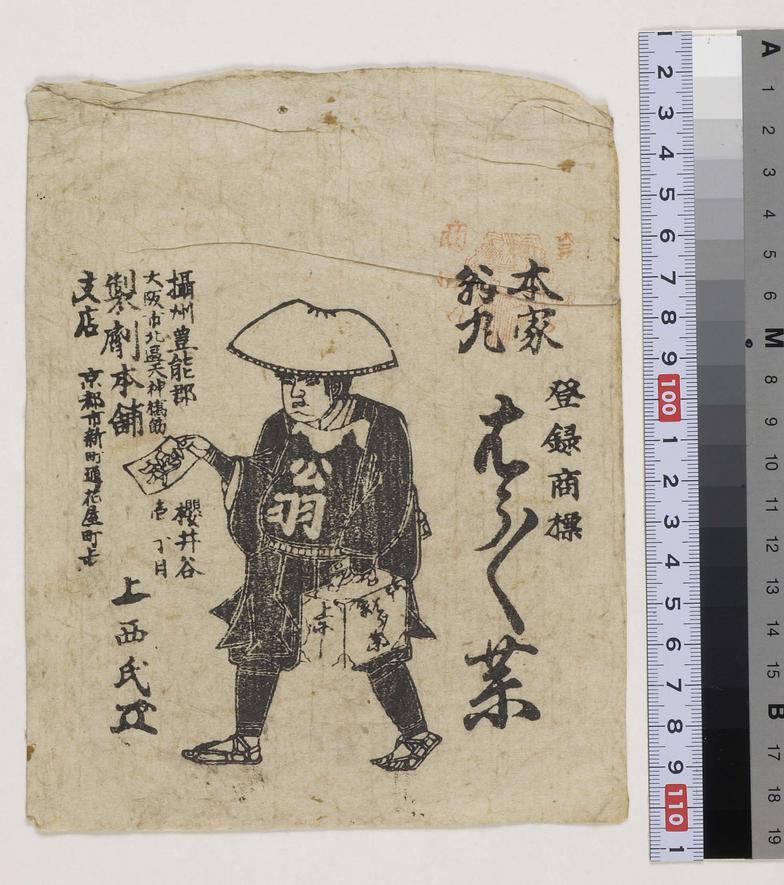 本家
翁丸
登録商標
はらく薬
攝州豊能郡
櫻井谷
大阪市北區天神橋筋
壱丁目
製劑本舗
上西氏
支店
京都市新町通花屋町上
翁
1 2 3 4 5 6 7 8 9 100 1 2 3 4 5 6 7 8 9 110 1
A 1 2 3 4 5 6 M 8 9 10 11 12 13 14 15 B 17 18 19